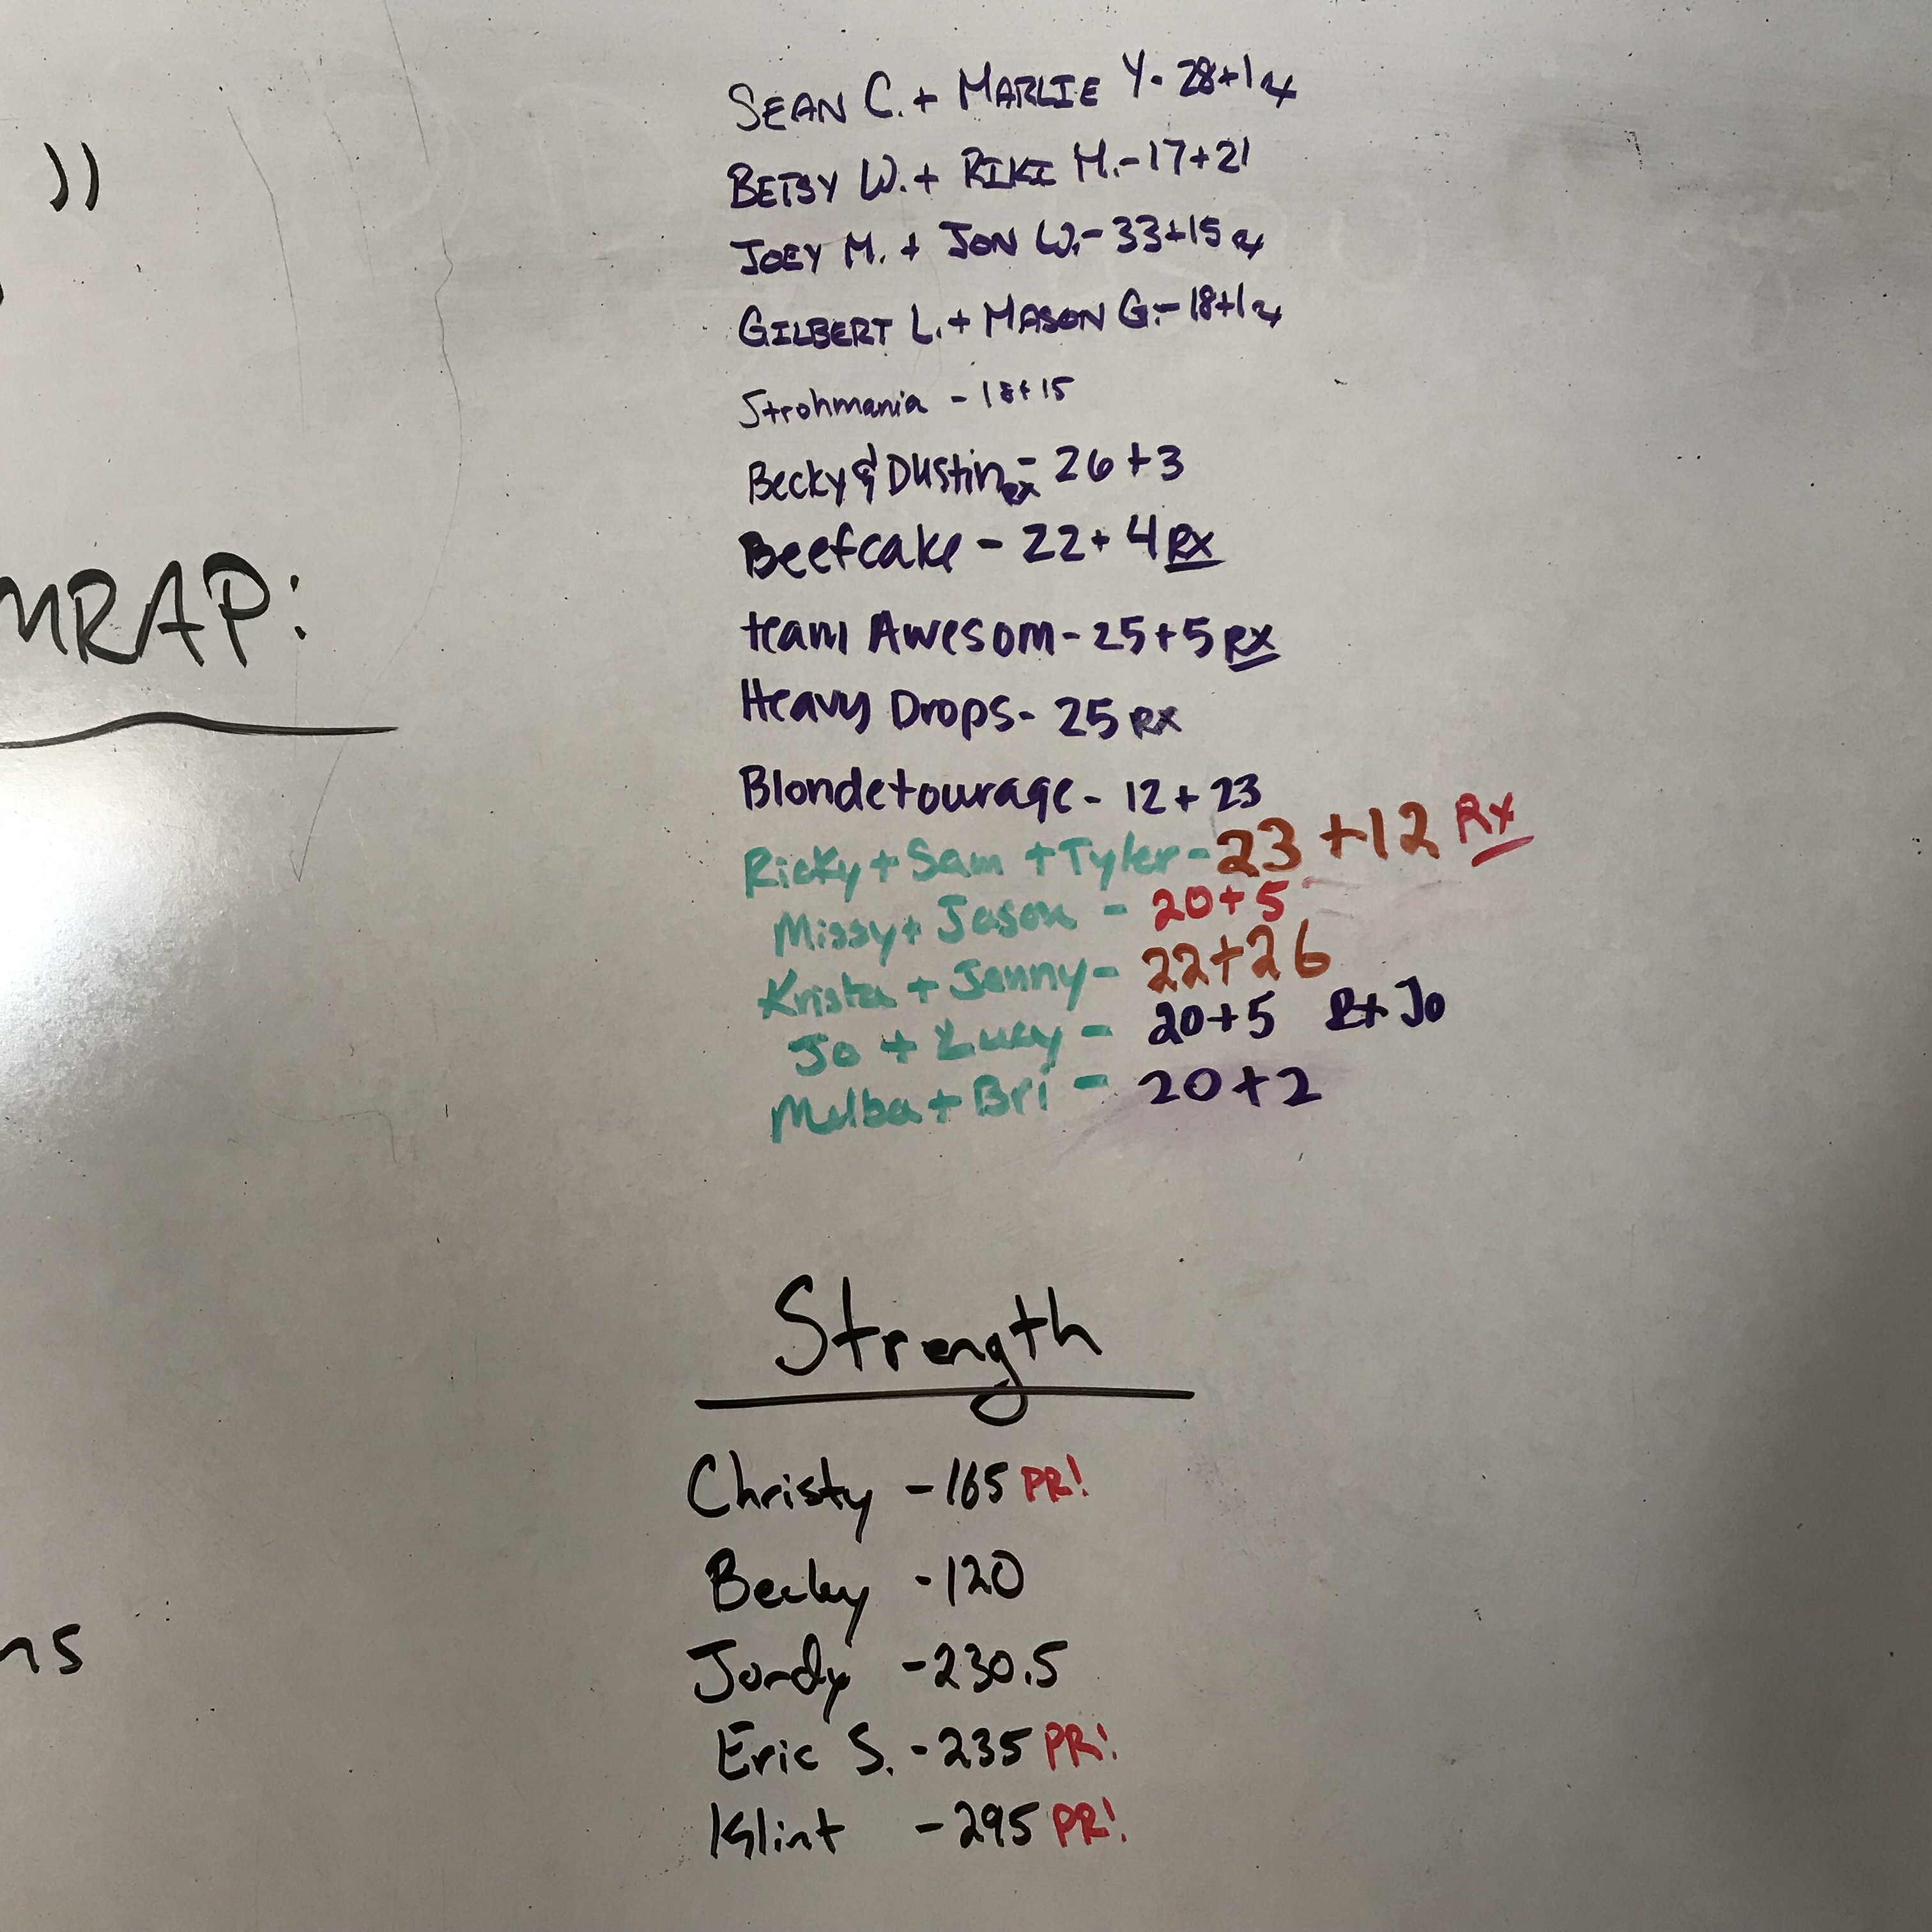 ))
SEAN C. + MARLIE Y- 28+1 rx
BETSY W. + RIKI M.-17+21
JOEY M. + JON W.- 33+15 rx
GILBERT L. + MASON G.- 18+1 rx
Strohmania - 18+15
Becky & Dustin RX - 26+3
MRAP:
Beefcake - 22+4 RX
team Awesom - 25+5 RX
Heavy Drops- 25 RX
Blondetourage - 12+23
Ricky + Sam + Tyler - 23 +12 Rx
Missy + Jason - 20+5
Krista + Jenny - 22+26
Jo + Lucy - 20+5 Rx Jo
Melba + Bri - 20+2
Strength
Christy -165 PR!
Becky -120
ns
Jordy -230.5
Eric S. -235 PR!
Klint -295 PR!